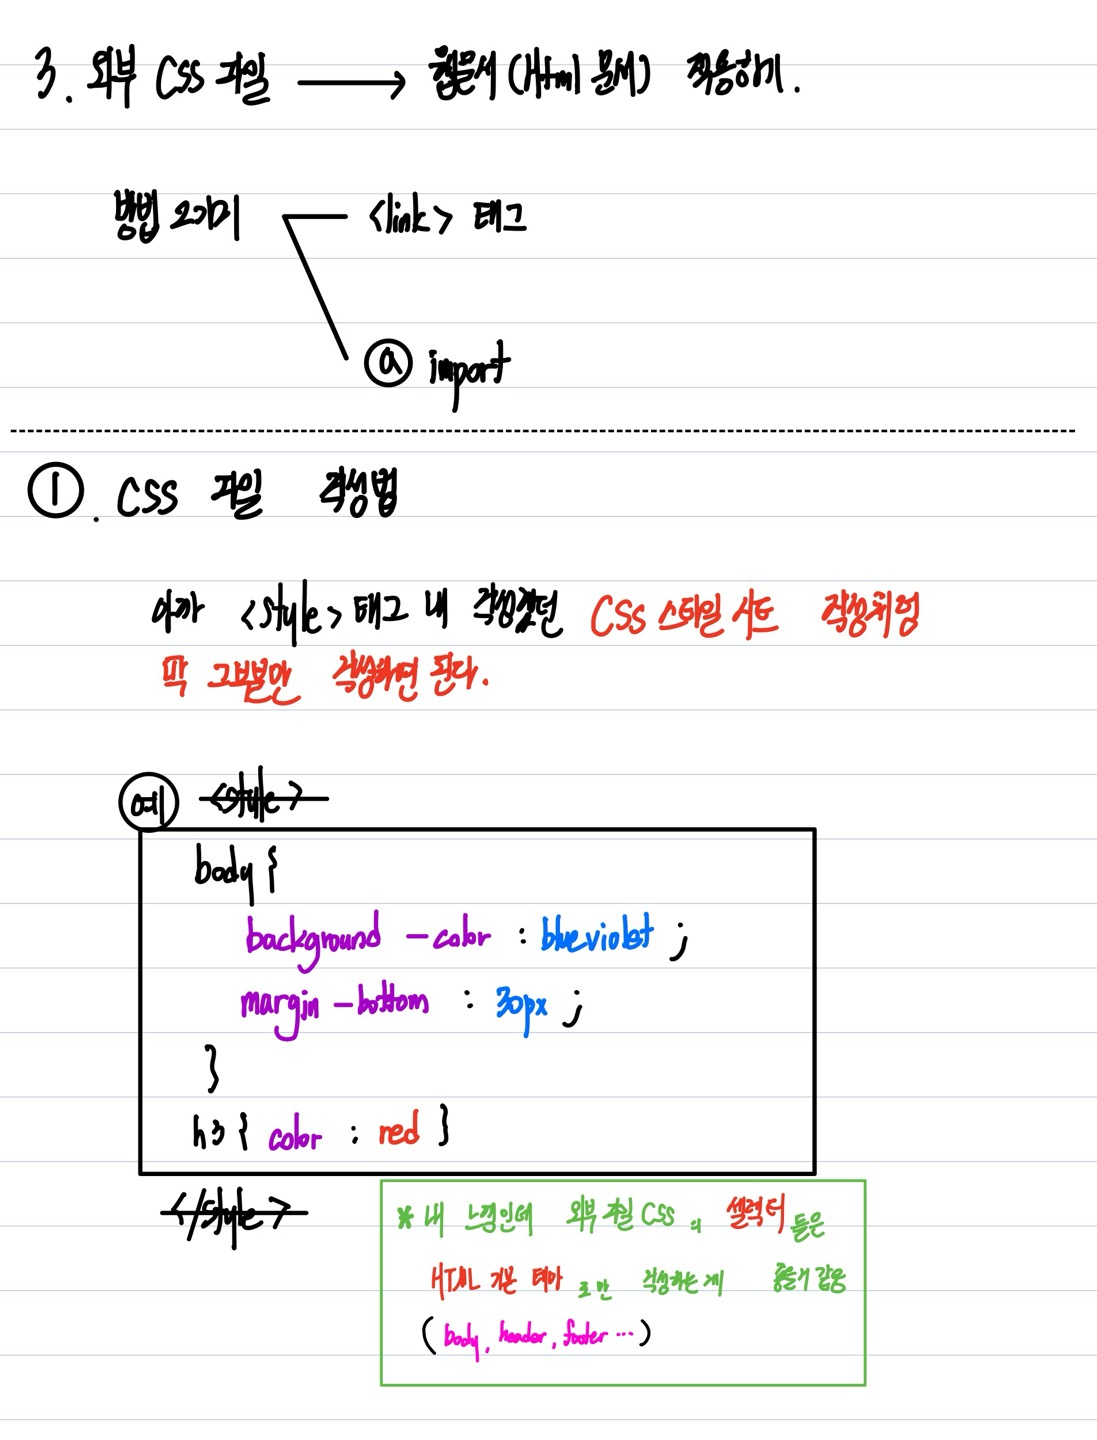 3. 외부 CSS 파일 → 웹문서(Html 문서) 적용하기.
방법 2가지 <link> 태그
@ import
①. CSS 파일 작성법
아까 <style> 태그 내 작성했던 CSS 스타일 시트 작성처럼
딱 그부분만 작성하면 된다.
예 <style>
body {
background-color : blueviolet ;
margin-bottom : 30px ;
}
h3 { color : red }
</style>
* 내 느낌인데 외부 파일 CSS 의 셀렉터 들은
HTML 기본 테마 로만 작성하는게 좋을거 같음
(body, header, footer ...)